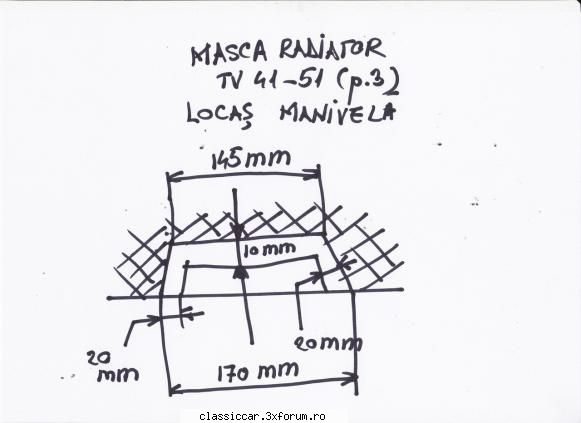 MASCA RADIATOR
TV 41-51 (p.3)
LOCAȘ MANIVELA
145mm
10mm
20 mm
20mm
170 mm
classiccar.3xforum.ro